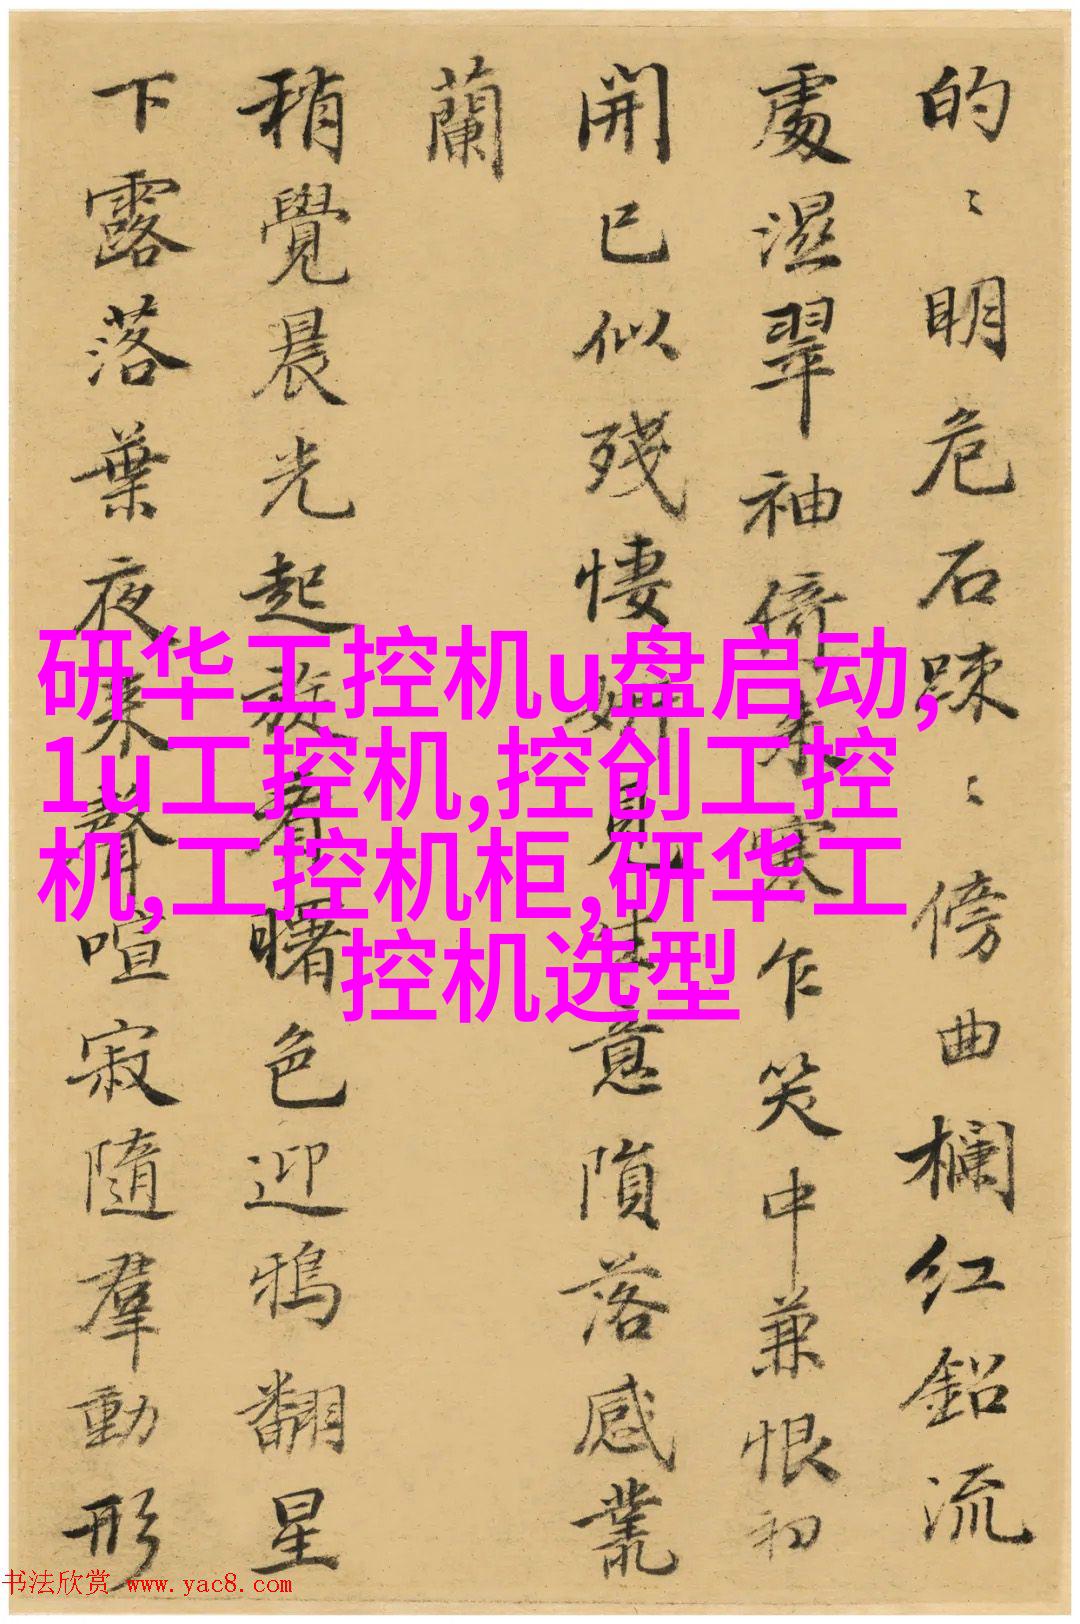 的〻明危石踈〻傍曲欄红鉛流
處濕翠袖倚来寒乍笑中兼恨初
開已似殘悽妍見生意隕落感叢
蘭
稍覺晨光起巍看曙色迎鴉翻星
下露落葉夜来聲喧寂隨羣動形
研华工控机u盘启动,
1u工控机,控创工控
机,工控机柜,研华工
控机选型
书法欣赏 www.yac8.com